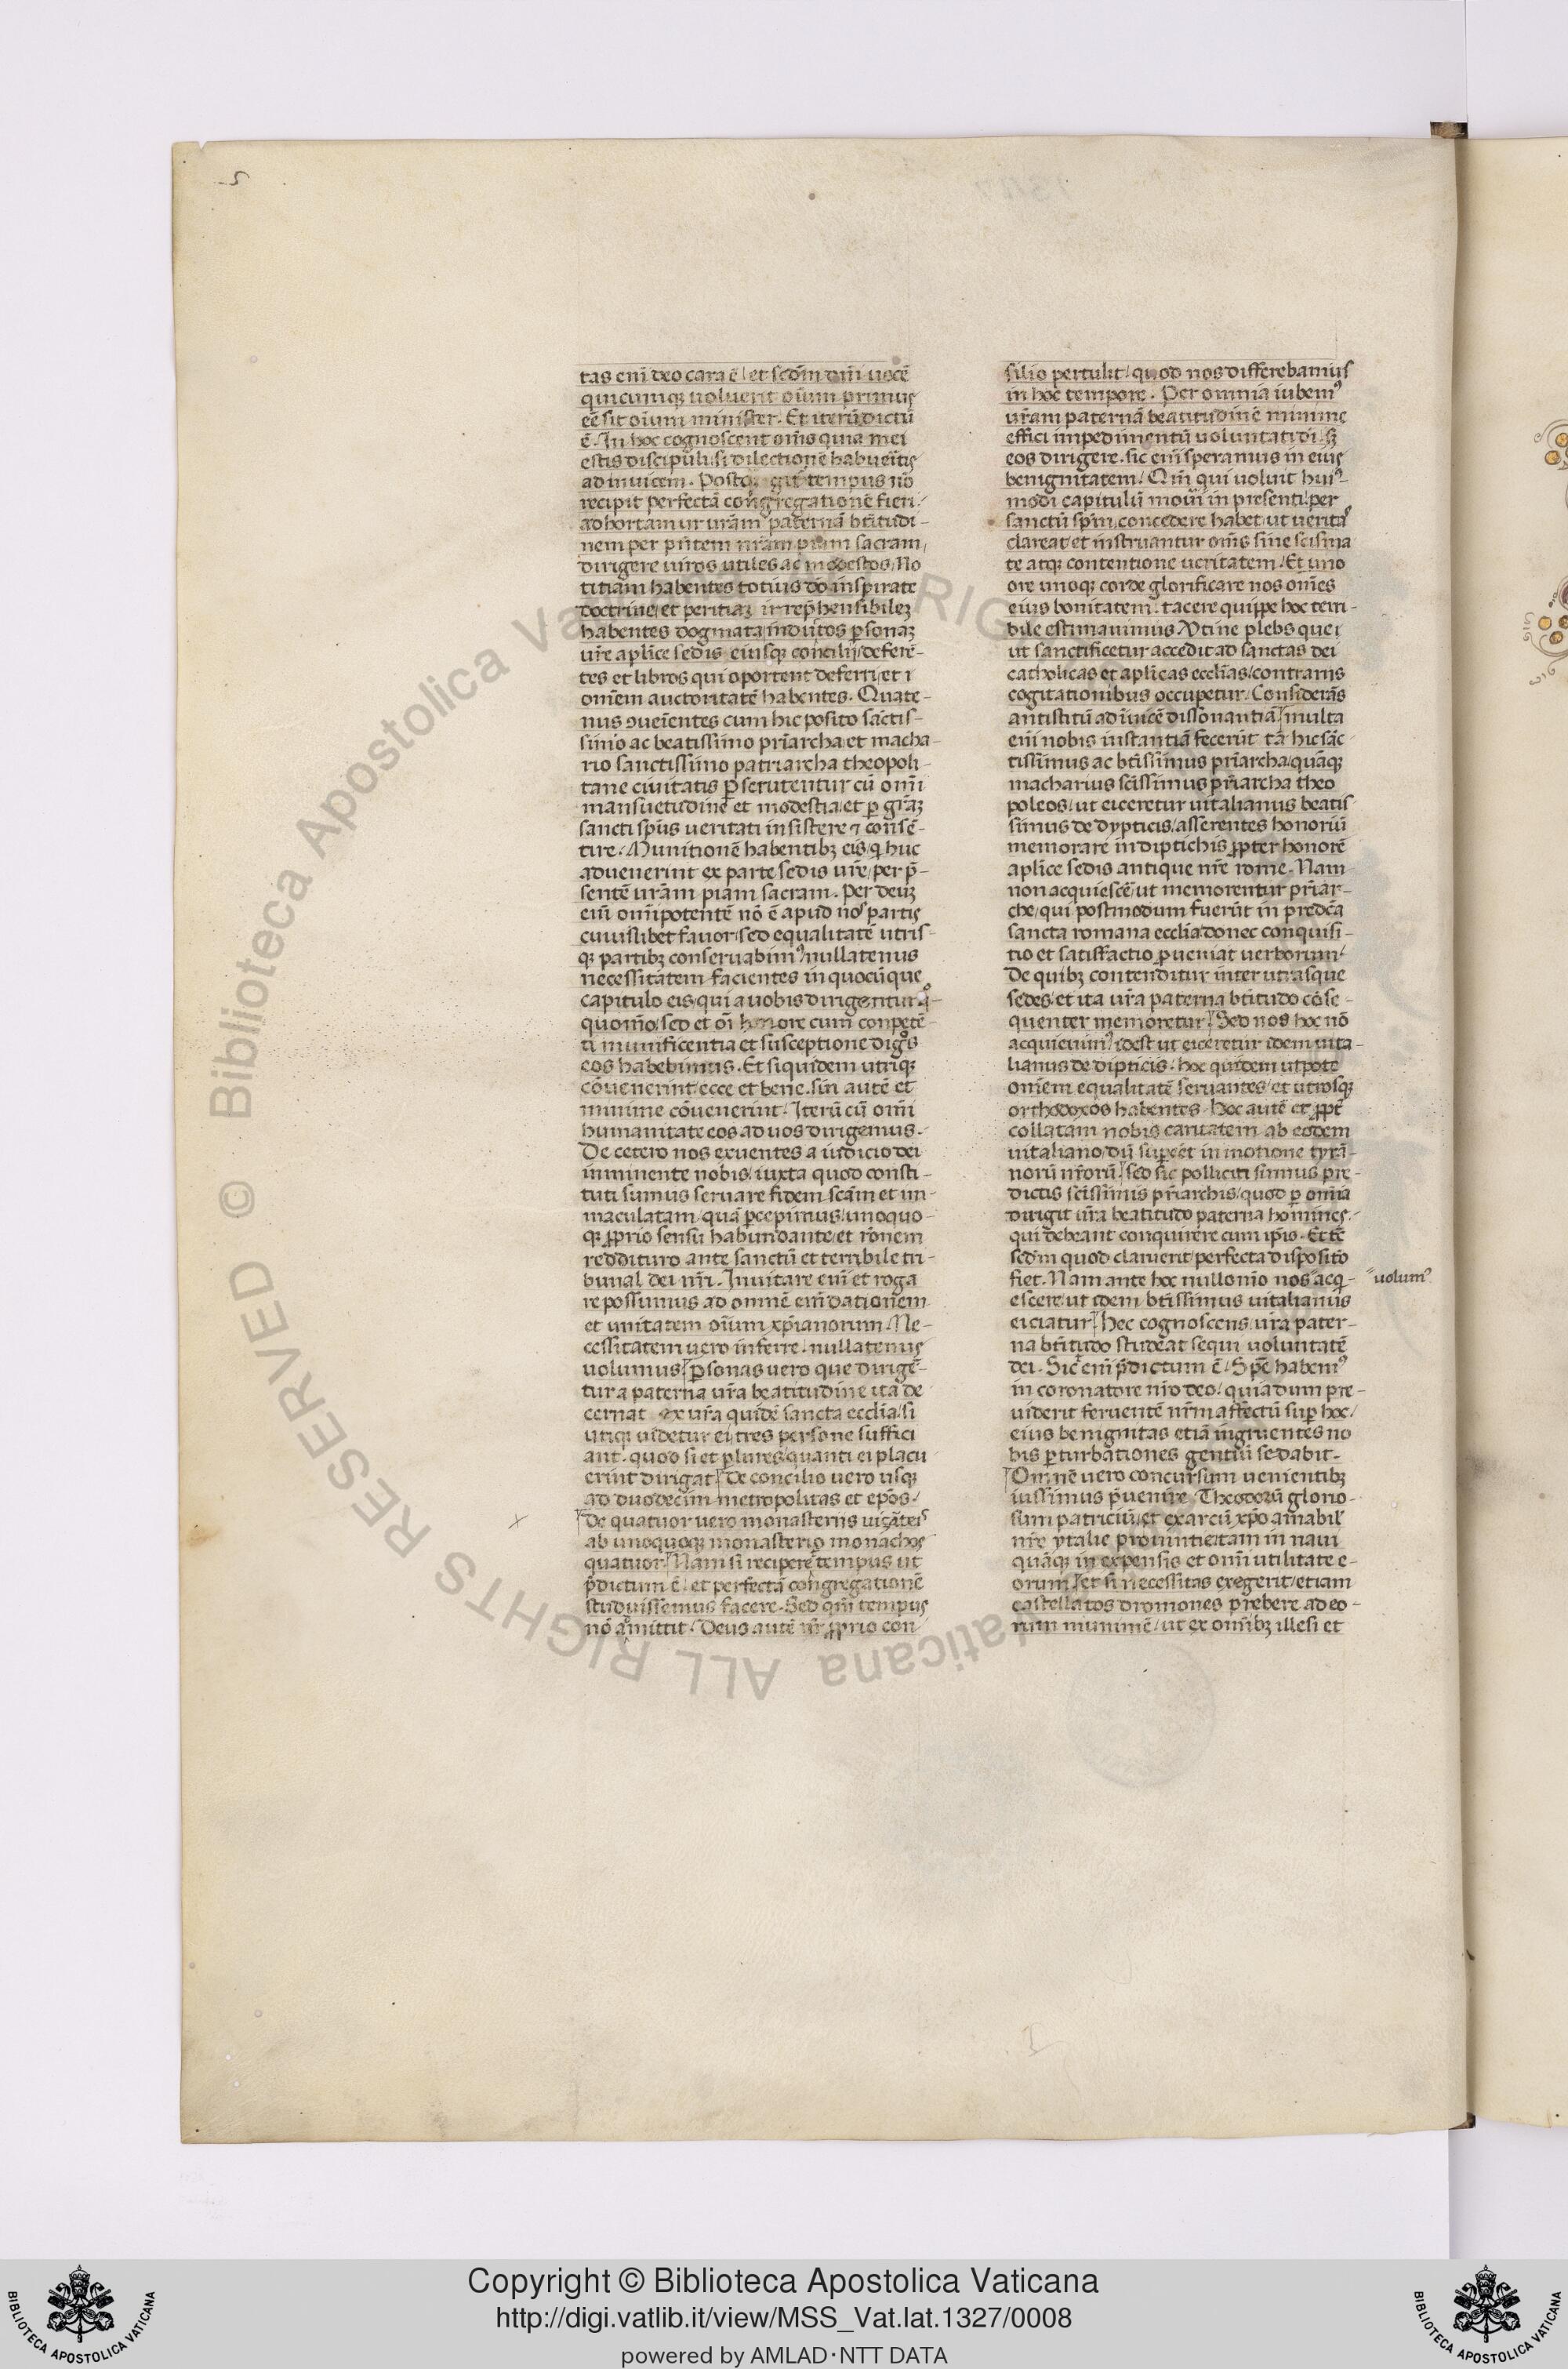 tas eni͂ deo cara ē et scdm̄ dn̄i uocē
quicumqꝫ uoluerit oi͂um primus
eē sit oi͂um minister. Et iterū dictū
ē. In hoc cognoscent om̄s quia mei
estis discipuli si dilectionē habueritis
ad inuicem. tempus nō
recipit perfectā congregationē fieri
adhortamur uram̄ paternā bt͂itudi-
nem per pn̄tem nram̄ piam sacram
dirigere uiros utiles ac modestos, No
titiam habentes totius do͂ inspirate
doctrine, et peritiaꝫ irrep̄hensibileꝫ
habentes dogmatā, indutos ꝑsonaꝫ
ur̄e aplice sedis eiusqꝫ concilij, deferē-
tes et libros qui oportent deferri, et ı
omēm auctoritatē habentes. Quate-
nus ꝯueīentes cum hic posito sanctis-
simo ac beatissimo pri͂archa, et macha-
rio sanctissimo patriarcha theopoli-
tane ciuitatis ꝑscrutentur cū omi͂
mansuetudine et modestia, et ꝑ gra͂ꝫ
sancti sp̄us ueritati insistere ⁊ consē-
tire. Munitionē habentibꝫ eis, q huc
aduenerint ex parte sedis ur̄e, per p̄-
sentē uram̄ piam sacram. Per deuꝫ
eni͂ omi͂potentē nō ē apud nos partis
cuiuslibet fauor, sed equalitatē utris-
qꝫ partibꝫ conseruabimꝰ, nullatenus
necessitatem facientes in quocūque
capitulo eis, qui a uobis dirigentur q̊-
quomo͂, sed et oi͂ honore cum conpetē-
ti munificentia et susceptione digos
eos habebimus. Et siquidem utriqꝫ
cōuenerint, ecce et bene. sin autē et
minime cōuenerint. Iterū cū omi͂
humanitate eos ad uos dirigemus.
De cetero nos exuentes a iudicio dei
imminente nobis, iuxta quod consti-
tuti sumus seruare fidem scam̄ et im-
maculatam, quā ꝑcepimus, unoquo-
qꝫ ꝓprio sensu habundante, et rōnem
reddituro ante sanctū et terribile tri-
bunal dei nr̄i. Inuitare eni͂ et roga
re possumus ad omnē em̄dationem
et unitatem oi͂um xp̄ianorum. Ne-
cessitatem uero inferre, nullatenus
uolumus. ꝑsonas uero que dirigē-
tur a paterna ur̄a beatitudine ita de
cernat ex ur̄a quidē sancta ecclīa, si
utiqꝫ uidetur ei, tres persone suffici
ant. quod si et ꝑlures, quanti ei placu
erint dirigat. De concilio uero usqꝫ
ad duodecim metropolitas et ep̄os.
De quatuor uero monasterijs
ab unoquoqꝫ monasterio monachos
quatuor. Nam si reciperet tempus ut
p̄dictum ē, et perfectā congregationē
studuissemus facere. Sed qm̄ tempus
nō amittit. Deus autē nr̄ ꝓprio con-
silio pertulit, quod nos differebamus
in hoc tempore. Per omnia iubemꝰ
uram̄ paternā beatitudinē minime
effici impedimentū uoluntati di͂, sꝫ
eos dirigere. sic eni͂ speramus in eius
benignitatem, Qm̄ qui uoluit huiꝰ-
modi capitulū moui͂ in presenti, per
sanctū sp̄m, concedere habet, ut ueritas
clareat, et instruantur om̄s sine scisma
te atqꝫ contentione ueritatem, Et uno
ore unoqꝫ corde glorificare nos om̄es
eius bonitatem. tacere quippe hoc terri-
bile estimauimus, Vtine plebs que ı
ut sanctificetur accedit ad sanctas dei
catholicas et aplicas ecclīas, contrarijs
cogitationibus occupetur. Considerās
antistitū ad īuicē dissonantiā, multa
eni͂ nobis instantiā fecerūt tā hic sāc
tissimus ac bt͂issimus pri͂archa, quāqꝫ
macharius scissimus pri͂archa theo
poleos, ut eiceretur uitalianus beatis
simus de dypticis, asserentes honoriū
memorare in diptichis ꝓpter honorē
aplice sedis antique nr̄e rome. Nam
non acquiescē ut memorentur pri͂ar-
che, qui postmodum fuerūt in predc̄a
sancta romana ecclīa, donec conquisi-
tio et satisfactio ꝓueniat uerborum,
De quibꝫ contenditur inter utrasque
sedes, et ita ur̄a paterna bt͂itudo cōse-
quenter memoretur. Sed nos hoc nō
acquieuimꝰ, idest ut eiceretur idem uita-
lianus de dipticis. hoc quidem utpote
omēm equalitatē seruantes, et utrosqꝫ
orthodoxos habentes. hoc autē et ꝓpt̄
collatam nobis caritatem ab eodem
uitaliano, dū suꝑeēt in motione tyrā-
norū nr̄orū. sed sic polliciti sumus pre-
dictis sc͂issimis pri͂archis, quod ꝑ omi͂a
dirigit ur̄a beatitudo paterna homines,
qui debeant conquirere cum ip̄is. Et tē
secdm̄ quod claruerit, perfecta dispositō
fiet. Nam ante hoc nullomo͂ nos acq-
escere, ut idem bt͂issimus uitalianus
eiciatur. hec cognoscens ur̄a pater-
na bt͂itudo studeat sequi uoluntatē
dei. Sic eni͂ p̄dictum ē. Spē habemꝰ
in coronatore nr̄o deo, quia dum pre-
uiderit feruentē nr̄m affectū suꝑ hoc,
eius benignitas etiā ingruentes no
bis ꝑturbationes gentiū sedabit.
Omnē uero concursum uenientibꝫ
iussimus p̄uenire. Theodorū glorio-
sum patriciū, et exarcū xp̄o amabil͂
nr̄e ytalie prouintie, tam in naui
quāqꝫ in expensis et omi͂ utilitate e-
orum, et si necessitas exegerit, etiam
castellatos dromones prebere ad eo-
rum munimē, ut ex omi͂bꝫ illesi et
uolumꝰ
Copyright © Biblioteca Apostolica Vaticana
http://digi.vatlib.it/view/MSS_Vat.lat.1327/0008
powered by AMLAD·NTT DATA
BIBLIOTECA APOSTOLICA VATICANA
BIBLIOTECA APOSTOLICA VATICANA
© Biblioteca Apostolica Vaticana ALL RIGHTS RESERVED